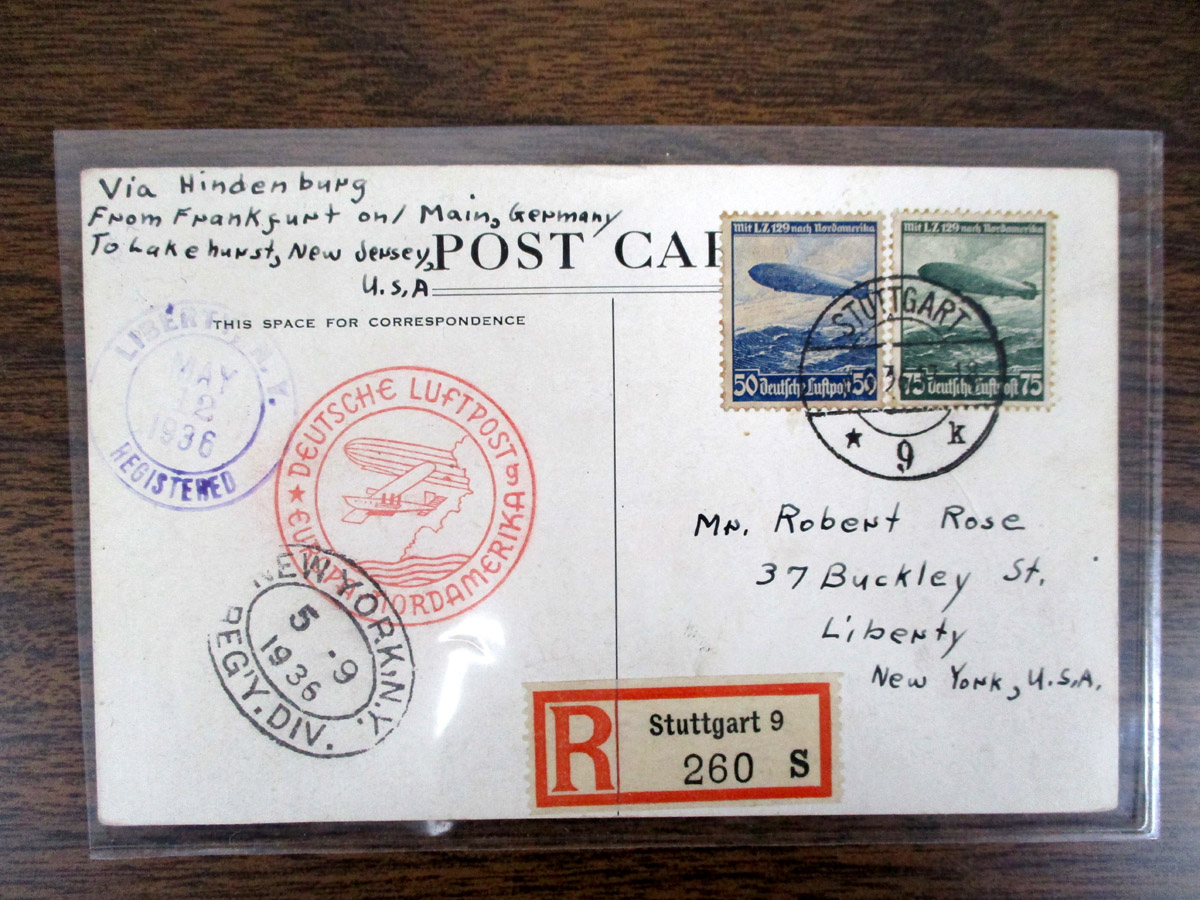 Via Hindenburg
From Frankfurt on/ Main, Germany
To Lakehurst, New Jersey,
U.S.A
POST CAR
THIS SPACE FOR CORRESPONDENCE
Mit LZ 129 nach Nordamerika
50 Deutsche Luftpost 50
Mit LZ 129 nach Nordamerika
75 Deutsche Luftpost 75
STUTTGART
9 k
LIBERTY, N.Y.
MAY
12
1936
REGISTERED
DEUTSCHE LUFTPOST g
EUROPA NORDAMERIKA
NEW YORK, N.Y.
5 - 9
1936
REG'Y. DIV.
Mr. Robert Rose
37 Buckley St.
Liberty
New York, U.S.A.
R
Stuttgart 9
260 S